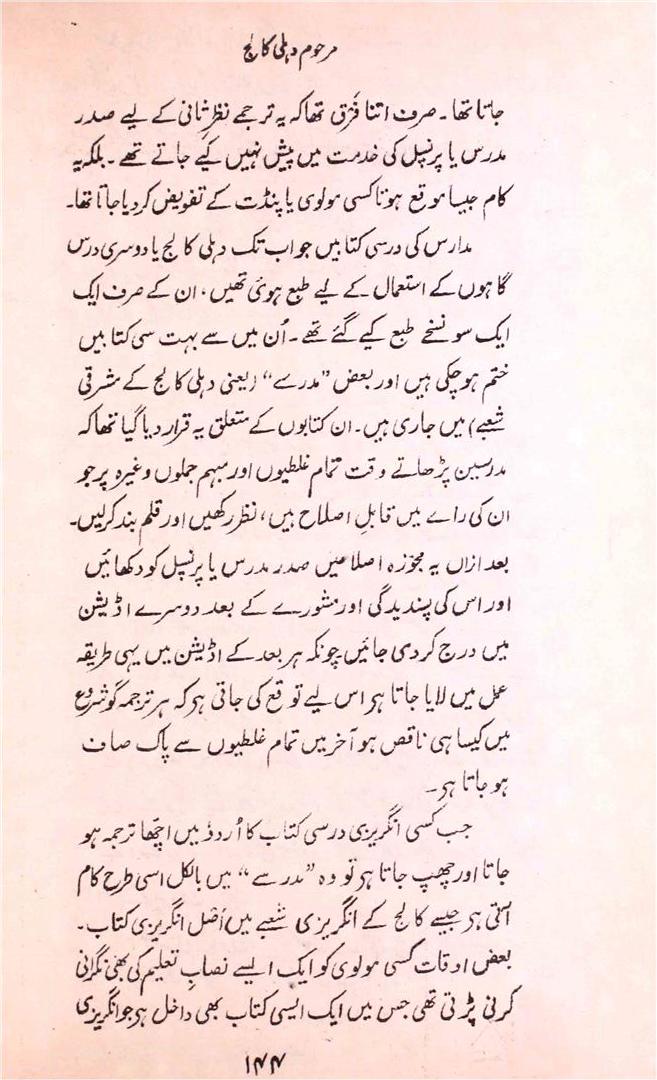 مرحوم دہلی کالج
جاتا تھا۔ صرف اتنا فرق تھا کہ یہ ترجمے نظرِ ثانی کے لیے صدر
مدرس یا پرنسپل کی خدمت میں پیش نہیں کیے جاتے تھے۔ بلکہ یہ
کام جیسا موقع ہوتا کسی مولوی یا پنڈت کے تفویض کر دیا جاتا تھا۔
مدارس کی درسی کتابیں جو اب تک دہلی کالج یا دوسری درس
گاہوں کے استعمال کے لیے طبع ہوئی تھیں، ان کے صرف ایک
ایک سو نسخے طبع کیے گئے تھے۔ اُن میں سے بہت سی کتابیں
ختم ہو چکی ہیں اور بعض ”مدرسے“ (یعنی دہلی کالج کے مشرقی
شعبے) میں جاری ہیں۔ ان کتابوں کے متعلق یہ قرار دیا گیا تھا کہ
مدرسین پڑھاتے وقت تمام غلطیوں اور مبہم جملوں وغیرہ پر جو
ان کی راے میں قابلِ اصلاح ہیں، نظر رکھیں اور قلم بند کر لیں۔
بعد ازاں یہ مجوّزہ اصلاحیں صدر مدرس یا پرنسپل کو دکھائیں
اور اس کی پسندیدگی اور مشورے کے بعد دوسرے اڈیشن
میں درج کر دی جائیں چونکہ ہر بعد کے اڈیشن میں یہی طریقہ
عمل میں لایا جاتا ہر اس لیے توقع کی جاتی ہر کہ ہر ترجمہ گو شروع
میں کیسا ہی ناقص ہو آخر میں تمام غلطیوں سے پاک صاف
ہو جاتا ہر۔
جب کسی انگریزی درسی کتاب کا اُردو میں اچھّا ترجمہ ہو
جاتا اور چھپ جاتا ہر تو وہ ”مدرسے“ میں بالکل اسی طرح کام
آتی ہر جیسے کالج کے انگریزی شعبے میں اصل انگریزی کتاب۔
بعض اوقات کسی مولوی کو ایک ایسے نصابِ تعلیم کی بھی نگرانی
کرنی پڑتی تھی جس میں ایک ایسی کتاب بھی داخل ہر جو انگریزی
۱۴۴